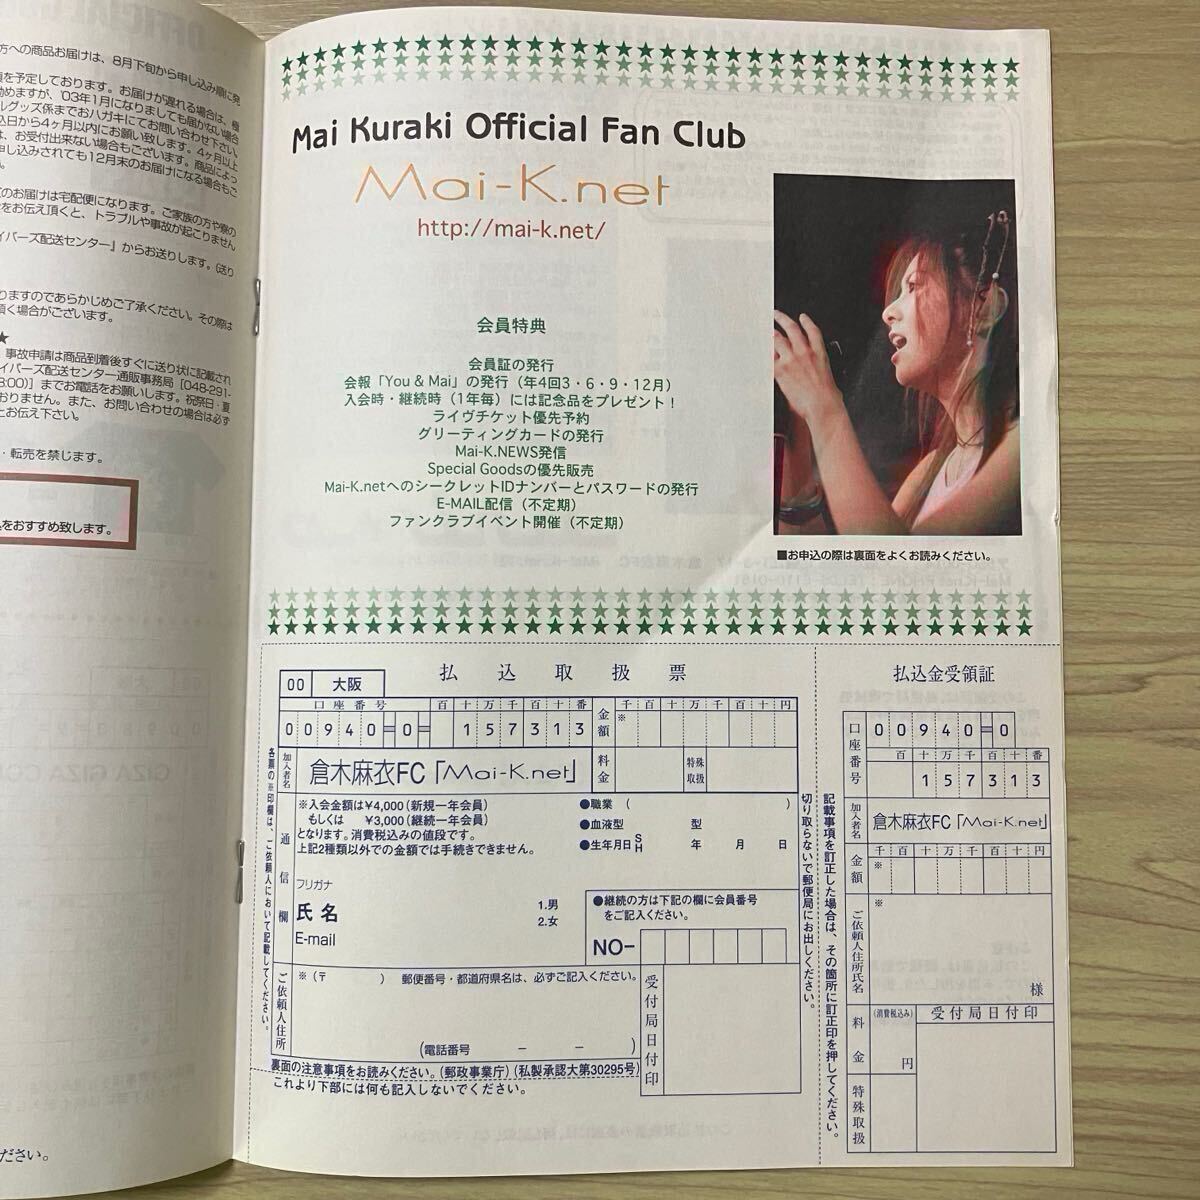 方への商品お届けは、8月下旬から申し込み順に発
頭を予定しております。お届けが遅れる場合は、極
努めますが、'03年1月になりましても届かない場合
ルグッズ係までおハガキにてお問い合わせ下さい。
込日から4ヶ月以内にお願い致します。4ヶ月以上
は、お受付出来ない場合もございます。商品によっ
申し込みされても12月末のお届けになる場合もご
のお届けは宅配便になります。ご家族の方や寮の
をお伝え頂くと、トラブルや事故が起こりません
イバーズ配送センター』からお送りします。(送り
りますのであらかじめご了承ください。その際は
頂く場合がございます。
★
事故申請は商品到着後すぐに送り状に記載され
イバーズ配送センター通販事務局[048-291-
8:00)]までお電話をお願いします。祝祭日・夏
おりません。また、お問い合わせの場合は必ず
とお伝え下さい。
・転売を禁じます。
をおすすめ致します。
ださい。
Mai Kuraki Official Fan Club
Mai-K.net
http://mai-k.net/
会員特典
会員証の発行
会報「You & Mai」の発行（年4回3・6・9・12月）
入会時・継続時（1年毎）には記念品をプレゼント！
ライヴチケット優先予約
グリーティングカードの発行
Mai-K.NEWS発信
Special Goodsの優先販売
Mai-K.netへのシークレットIDナンバーとパスワードの発行
E-MAIL配信（不定期）
ファンクラブイベント開催（不定期）
■お申込の際は裏面をよくお読みください。
00 大阪
払込取扱票
口座番号 百十万千百十番
00940=0= 157313
金額 ※ 千百十万千百十円
加入者名 倉木麻衣FC「Mai-K.net」
料金 特殊取扱
各票の※印欄は、ご依頼人において記載してください。
通信欄
※入会金額は¥4,000（新規一年会員）
もしくは ¥3,000（継続一年会員）
となります。消費税込みの値段です。
上記2種類以外での金額では手続きできません。
●職業（ ）
●血液型 型
●生年月日 S H 年 月 日
フリガナ
氏名
1.男
2.女
E-mail
●継続の方は下記の欄に会員番号
をご記入ください。
NO-
ご依頼人住所
※（〒 ） 郵便番号・都道府県名は、必ずご記入ください。
（電話番号 － － ）
受付局日付印
裏面の注意事項をお読みください。（郵政事業庁）（私製承認大第30295号）
これより下部には何も記入しないでください。
切り取らないで郵便局にお出しください。
記載事項を訂正した場合は、その箇所に訂正印を押してください。
払込金受領証
口座番号
00940=0
百十万千百十番
157313
加入者名 倉木麻衣FC「Mai-K.net」
金額 ※ 千百十万千百十円
ご依頼人住所氏名
※
様
料金 （消費税込み） 円
受付局日付印
特殊取扱